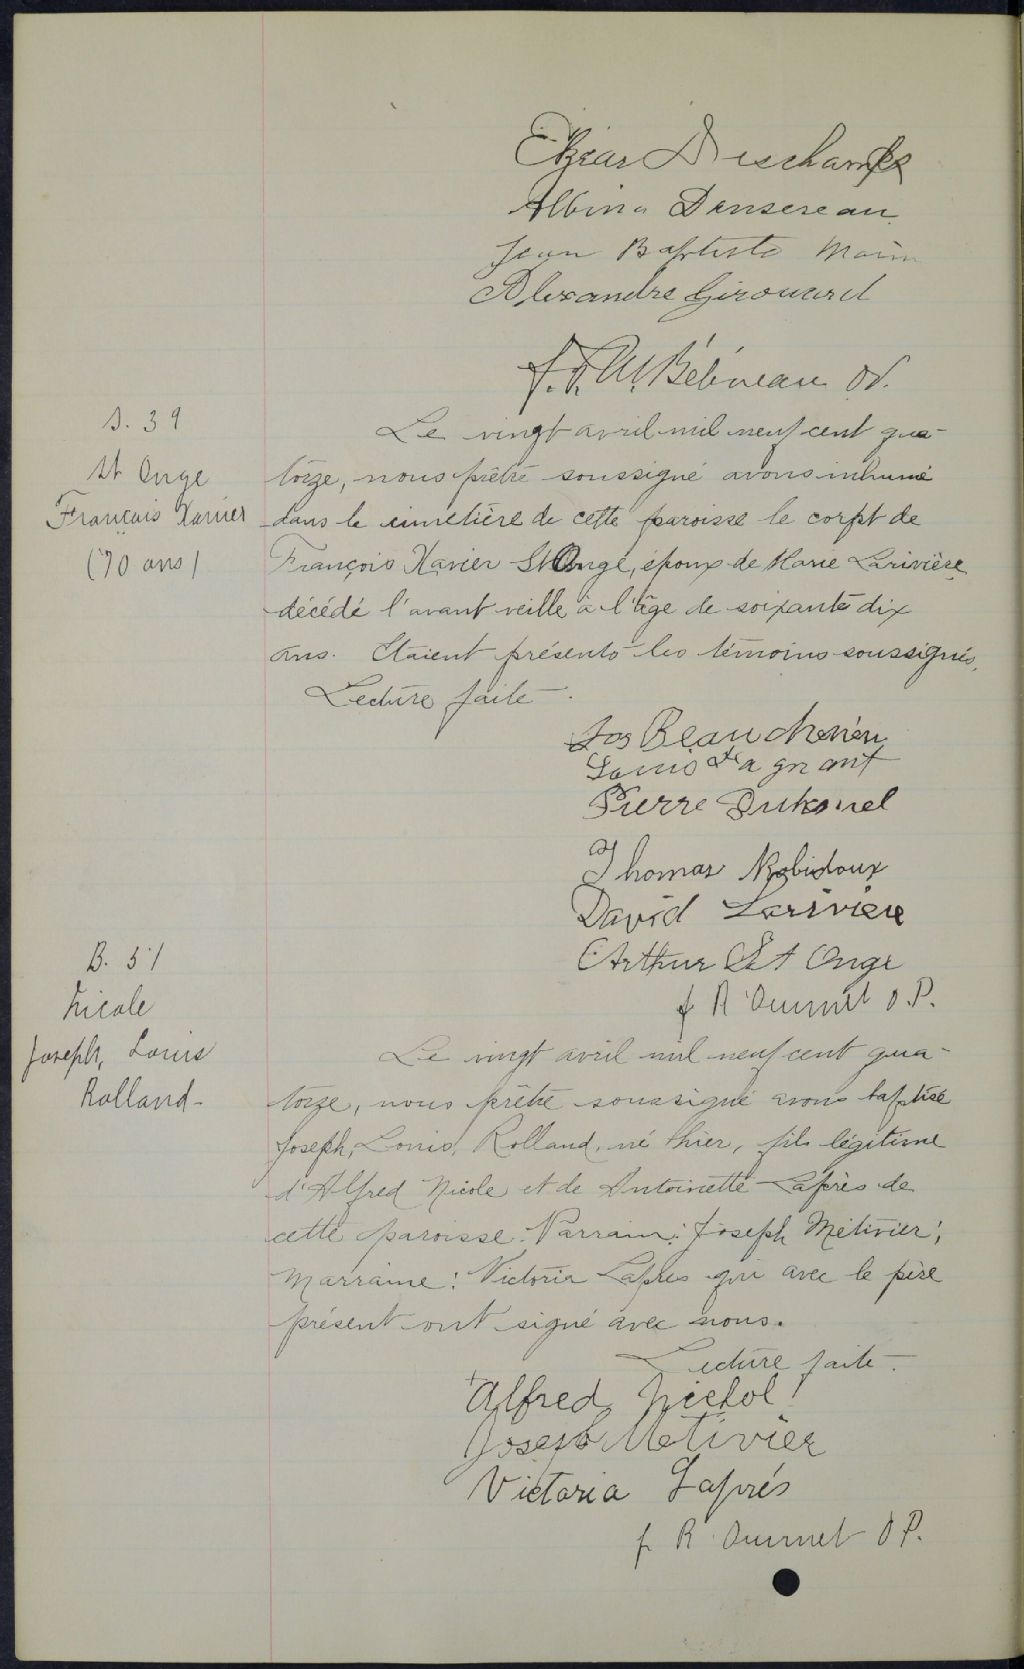 Elzear Deschamps
Albina Dansereau
Jean Baptiste Morin
Alexandre Girouard
f. Béliveau
S. 39
St Onge
François Xavier
(70 ans)
Le vingt avril mil neuf cent qua-
torze, nous prêtre soussigné avons inhumé
dans le cimetière de cette paroisse le corps de
François Xavier St Onge, époux de Marie Larivière
décédé l'avant veille à l'âge de soixante dix
ans. Etaient présents les témoins soussignés.
Lecture faite.
Jos Beauchemin
Louis
Pierre
Thomas Robidoux
David Lariviere
Arthur St Onge
f R Ouimet O.P.
B. 51
Nicole
Joseph, Louis
Rolland-
Le vingt avril mil neuf cent qua-
torze, nous prêtre soussigné avons baptisé
Joseph, Louis, Rolland, né hier, fils légitime
d'Alfred Nicole et de Antoinette Laprès de
cette paroisse. Parrain: Joseph Métivier;
Marraine: Victoria Laprès qui avec le père
présent ont signé avec nous.
Lecture faite.
Alfred Nickol
Joseph Metivier
Victoria Laprés
f R Ouimet O P.